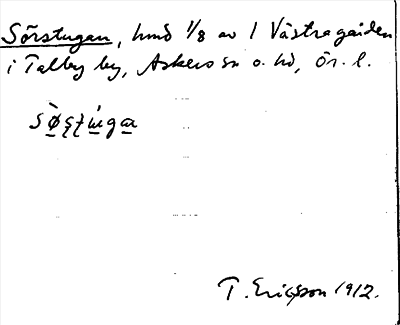 Sörstugan, hmd 1/8 av 1 Västragården
i Talby by, Askers sn o. hd, Ör. l.
sø̀ṣṭúgar
T. Ericsson 1912.